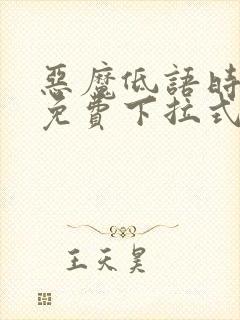 惡魔低語時
免費下拉式
王天昊